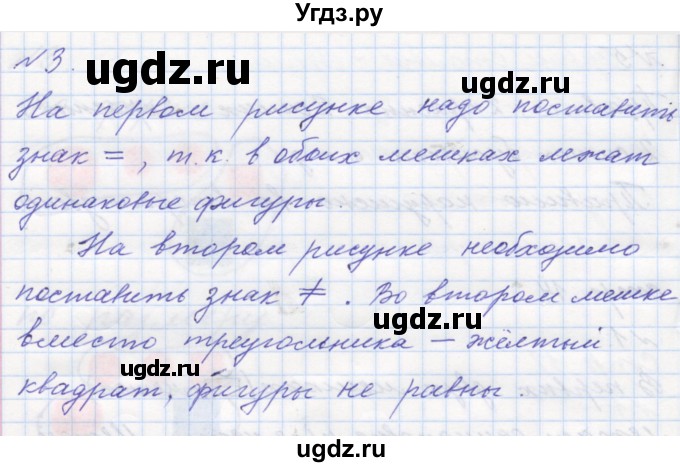 Угдз.ру
№3.
ugdz.ru
ugdz.ru
На первом рисунке надо поставить
знак =, т.к. в обоих мешках лежат
одинаковые фигуры.
ugdz.ru
ugdz.ru
На втором рисунке необходимо
поставить знак ≠. Во втором мешке
ugdz.ru
вместо треугольника – жёлтый
ugdz.ru
квадрат, фигуры не равны.
ugdz.ru
ugdz.ru